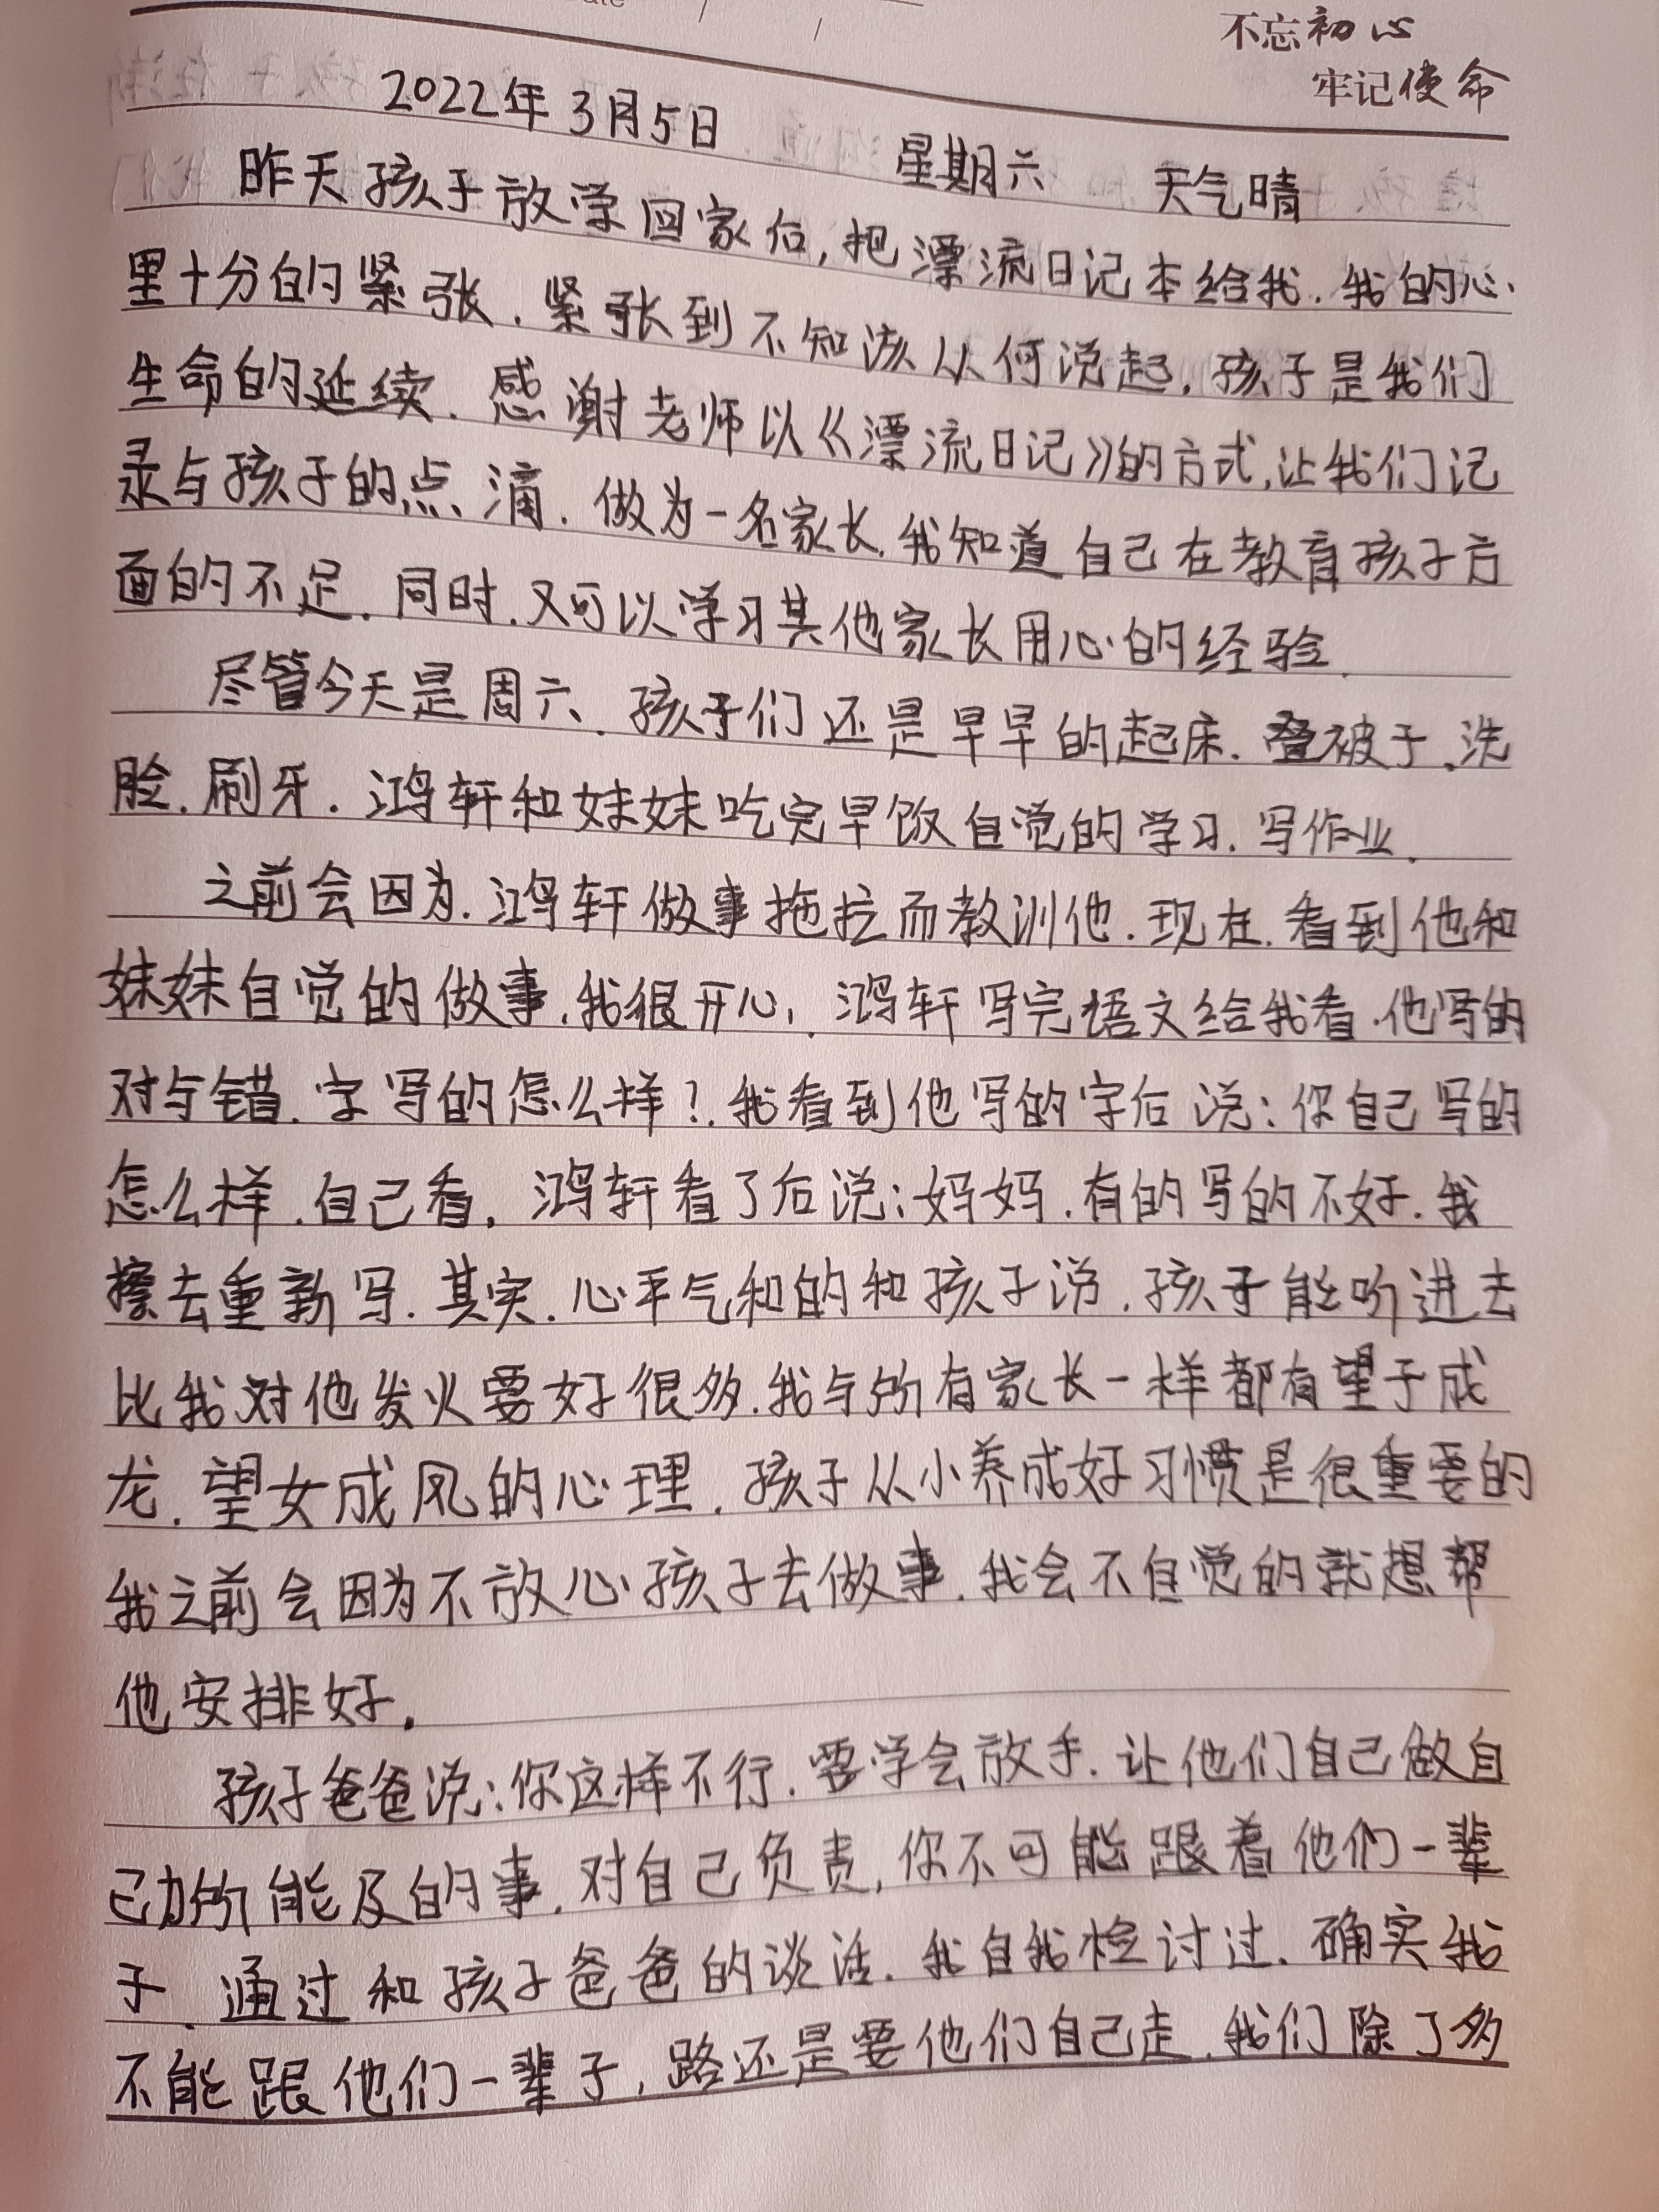 不忘初心
牢记使命
2022年3月5日 星期六 天气晴
昨天孩子放学回家后,把漂流日记本给我.我的心
里十分的紧张.紧张到不知该从何说起,孩子是我们
生命的延续.感谢老师以《漂流日记》的方式,让我们记
录与孩子的点滴.做为一名家长.我知道自己在教育孩子方
面的不足.同时.又可以学习其他家长用心的经验.
尽管今天是周六、孩子们还是早早的起床.叠被子.洗
脸.刷牙.鸿轩和妹妹吃完早饭自觉的学习.写作业.
之前会因为.鸿轩做事拖拉而教训他.现在.看到他和
妹妹自觉的做事.我很开心,鸿轩写完语文给我看.他写的
对与错.字写的怎么样?.我看到他写的字后说:你自己写的
怎么样.自己看.鸿轩看了后说:妈妈.有的写的不好.我
擦去重新写.其实.心平气和的和孩子说.孩子能听进去
比我对他发火要好很多.我与所有家长一样都有望子成
龙.望女成凤的心理.孩子从小养成好习惯是很重要的
我之前会因为不放心孩子去做事.我会不自觉的就想帮
他安排好.
孩子爸爸说:你这样不行.要学会放手.让他们自己做自
己力所能及的事.对自己负责,你不可能跟着他们一辈
子.通过和孩子爸爸的谈话.我自我检讨过.确实我
不能跟他们一辈子,路还是要他们自己走.我们除了多